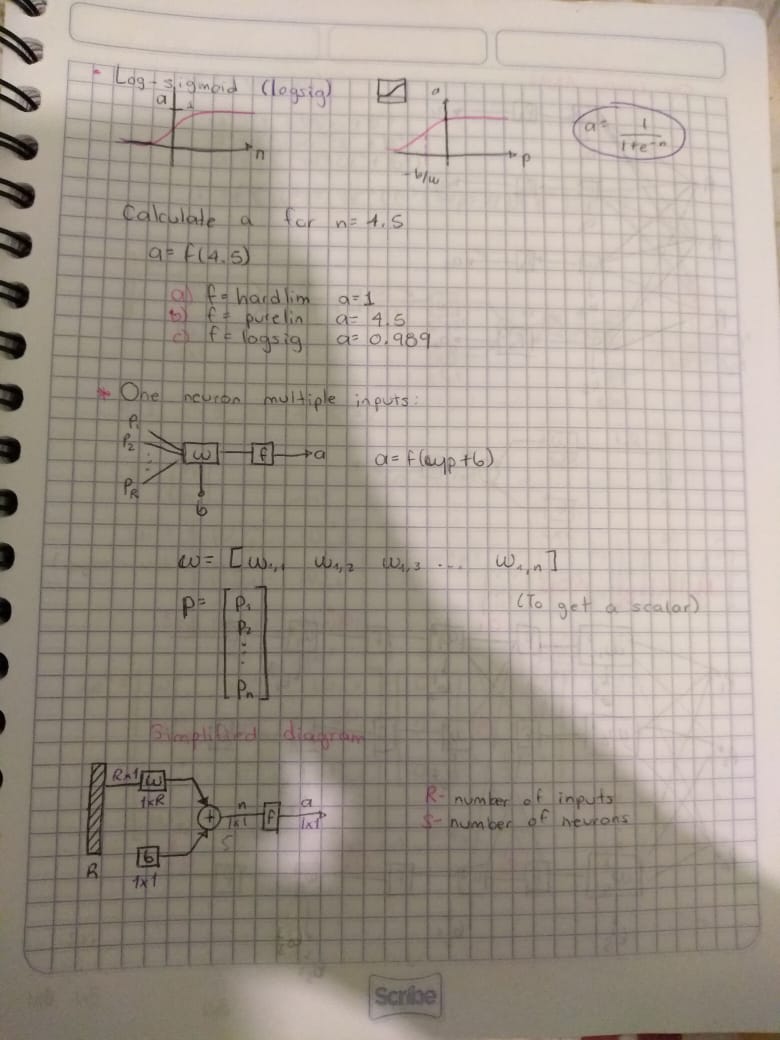 Log-sigmoid (logsig)
a
1
n
a
-b/w
p
a= 1/1+e^-n
Calculate a for n= 4.5
a= f(4.5)
a) f= hardlim a=1
b) f= purelin a= 4.5
c) f= logsig a= 0.989
* One neuron multiple inputs:
P1
P2
⋮
PR
w
f
a
b
a= f(wp+b)
w= [w1,1 w1,2 w1,3 ... w1,n]
P= [P1
P2
⋮
Pn]
(To get a scalar)
Simplified diagram
Rx1 w
1xR
+
n
1x1
S
f
a
1x1
R
b
1x1
R- number of inputs
S- number of neurons
Scribe